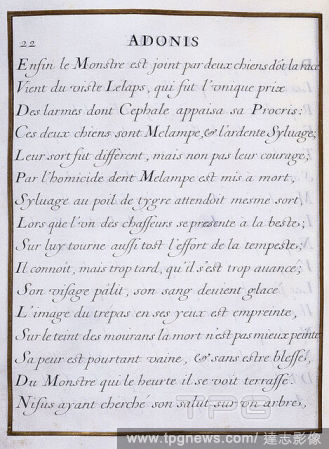 22
ADONIS
Enfin le Monstre est joint par deux chiens dôt la race
Vient du viste Lelaps, qui fut l'vnique prix
Des larmes dont Cephale appaisa sa Procris:
Ces deux chiens sont Melampe, & l'ardente Syluage,
Leur sort fut différent, mais non pas leur courage;
Par l'homicide dent Melampe est mis a mort,
Syluage au poil de tygre attendoit mesme sort
Lors que l'vn des chasseurs se presente a la beste;
Sur luy tourne aussi tost l'effort de la tempeste;
Il connoit, mais trop tard, qu'il s'est trop auance;
Son visage pâlit, son sang deuient glace
L'image du trepas en ses yeux est empreinte,
Sur le teint des mourans la mort n'est pas mieux peinte
Sa peur est pourtant vaine, & sans estre blessé,
Du Monstre qui le heurte il se voit terrassé.
Nisus ayant cherché son salut sur vn arbre,
TPG
www.tpgnews.com/ 達志影像